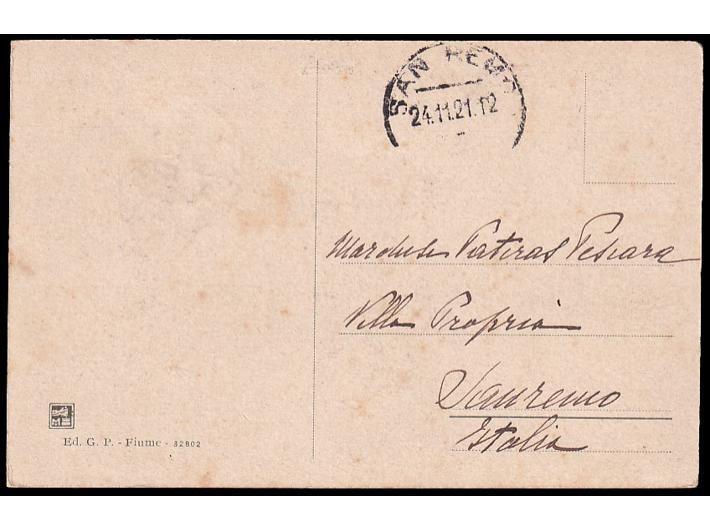 SAN REMO
24.11.21.12
Marchese Pateras Pescara
Villa Propria
Sanremo
Italia
Ed. G. P. - Fiume - 32802